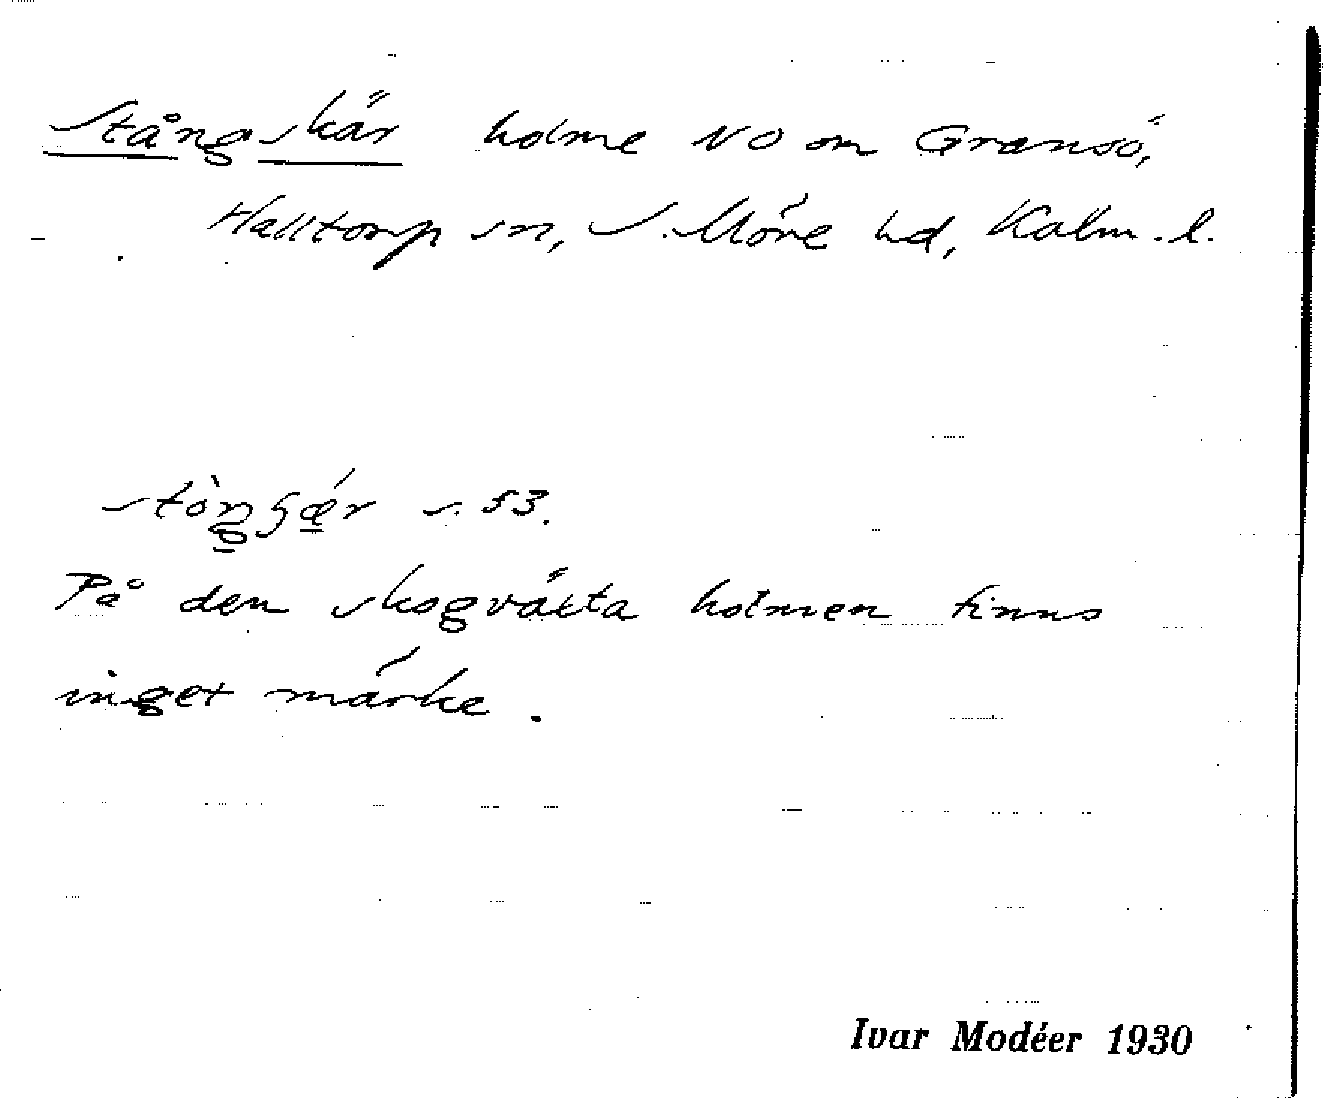 Stångskär holme NO om Gransö,
Halltorp sn, S. Möre hd, Kalm. l.
s. 53.
På den skogväxta holmen finns
inget märke.
Ivar Modéer 1930